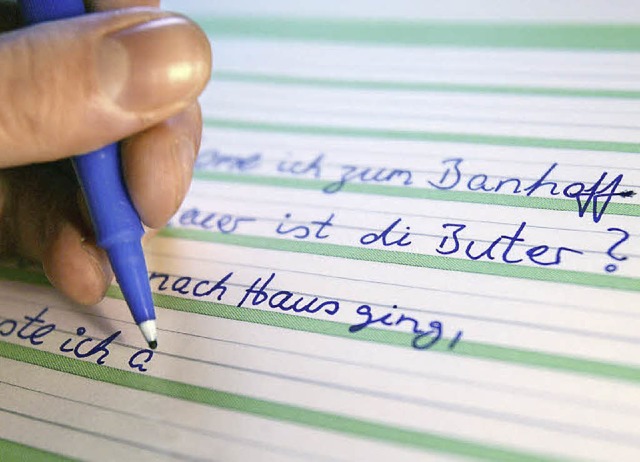 ich zum Banhoff
ist di Buter?
nach Haus ging,
ste ich a